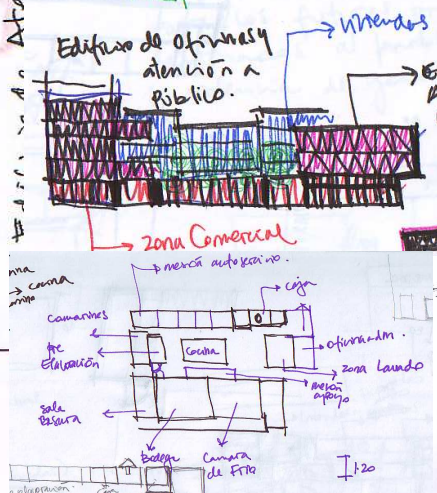 Edificio de oficinas y
atención a
público.
viviendas
zona Comercial
mesón autoservicio.
cocina
caja
Camarines
e
pre
Elaboración
Cocina
oficina adm.
zona Lavado
mesón
apoyo
sala
Basura
Bodega
Camara
de Fria
1.20